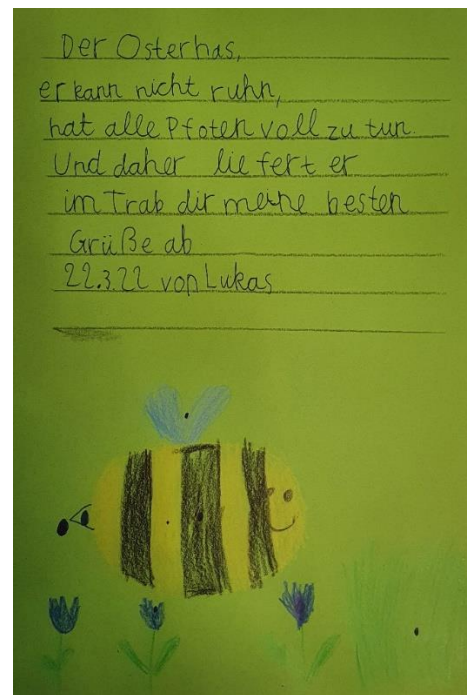 Der Osterhas,
er kann nicht ruhn,
hat alle Pfoten voll zu tun.
Und daher liefert er
im Trab dir meine besten
Grüße ab
22.3.22 von Lukas